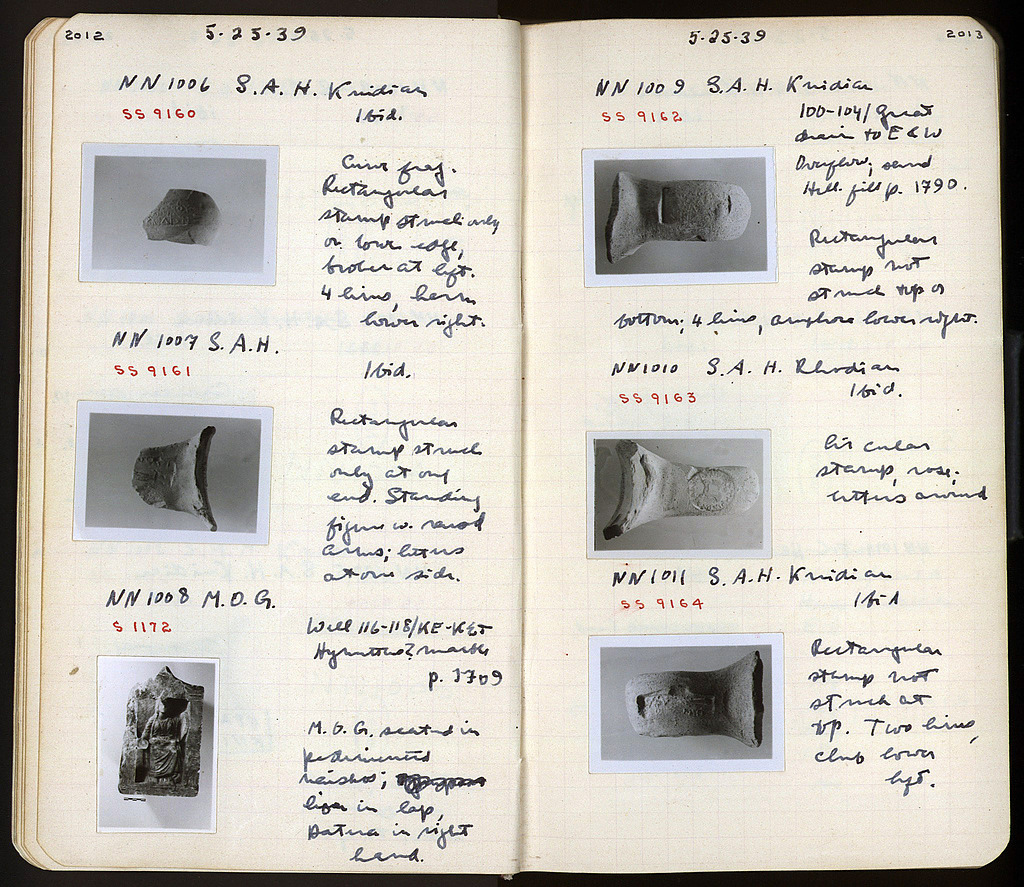 2012
5-25-39
NN 1006 S.A.H. Knidian
SS 9160
Ibid.
Curve frag.
Rectangular
stamp struck only
on lower edge,
broken at left.
4 lines, herm
lower right.
NN 1007 S.A.H.
SS 9161
Ibid.
Rectangular
stamp struck
only at one
end. Standing
figure w. raised
arms; letters
at one side.
NN 1008 M.O.G.
S 1172
Well 116-118/KE-KET
Hymettus? marble
p. 1709
M.O.G. seated in
pedimented
naiskos;
lion in lap,
patera in right
hand.
5-25-39
2013
NN 1009 S.A.H. Knidian
SS 9162
100-104/ Great
drain to E & W
Overflow; sand
Hell. fill p. 1790.
Rectangular
stamp not
struck top or
bottom; 4 lines, amphora lower right.
NN 1010 S.A.H. Rhodian
SS 9163
Ibid.
Circular
stamp, rose;
letters around
NN 1011 S.A.H. Knidian
SS 9164
Ibid
Rectangular
stamp not
struck at
top. Two lines,
club lower
left.